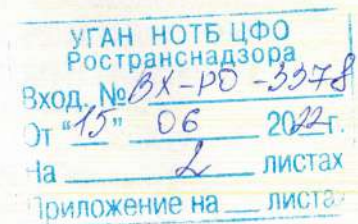 УГАН НОТБ ЦФО
Ространснадзора
Вход. № ВХ-РО-3378
От "15" 06 2022г.
На 2 листах
Приложение на листа